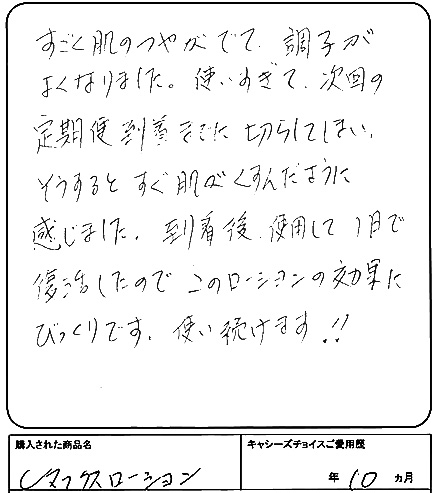 すごく肌のつやがでて、調子が
よくなりました。使いすぎて、次回の
定期便到着までに切らしてしまい、
そうするとすぐ肌がくすんだように
感じました。到着後、使用して1日で
復活したのでこのローションの効果に
びっくりです。使い続けます!!
購入された商品名
キャシーズチョイスご愛用歴
Cマックスローション
年 10 ヵ月